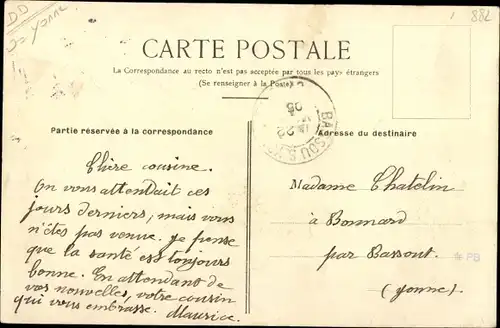 DD
Yonne
882
CARTE POSTALE
La Correspondance au recto n'est pas acceptée par tous les pays étrangers
(Se renseigner à la Poste)
Partie réservée à la correspondance
Adresse du destinaire
Chère cousine.
On vous attendait ces
jours derniers, mais vous
n'êtes pas venue. je pense
que la santé est toujours
bonne. En attendant de
vos nouvelles, votre cousin
qui vous embrasse. Maurice.
Madame Chatelin
à Bonnard
par Bassout.
(yonne)
PB